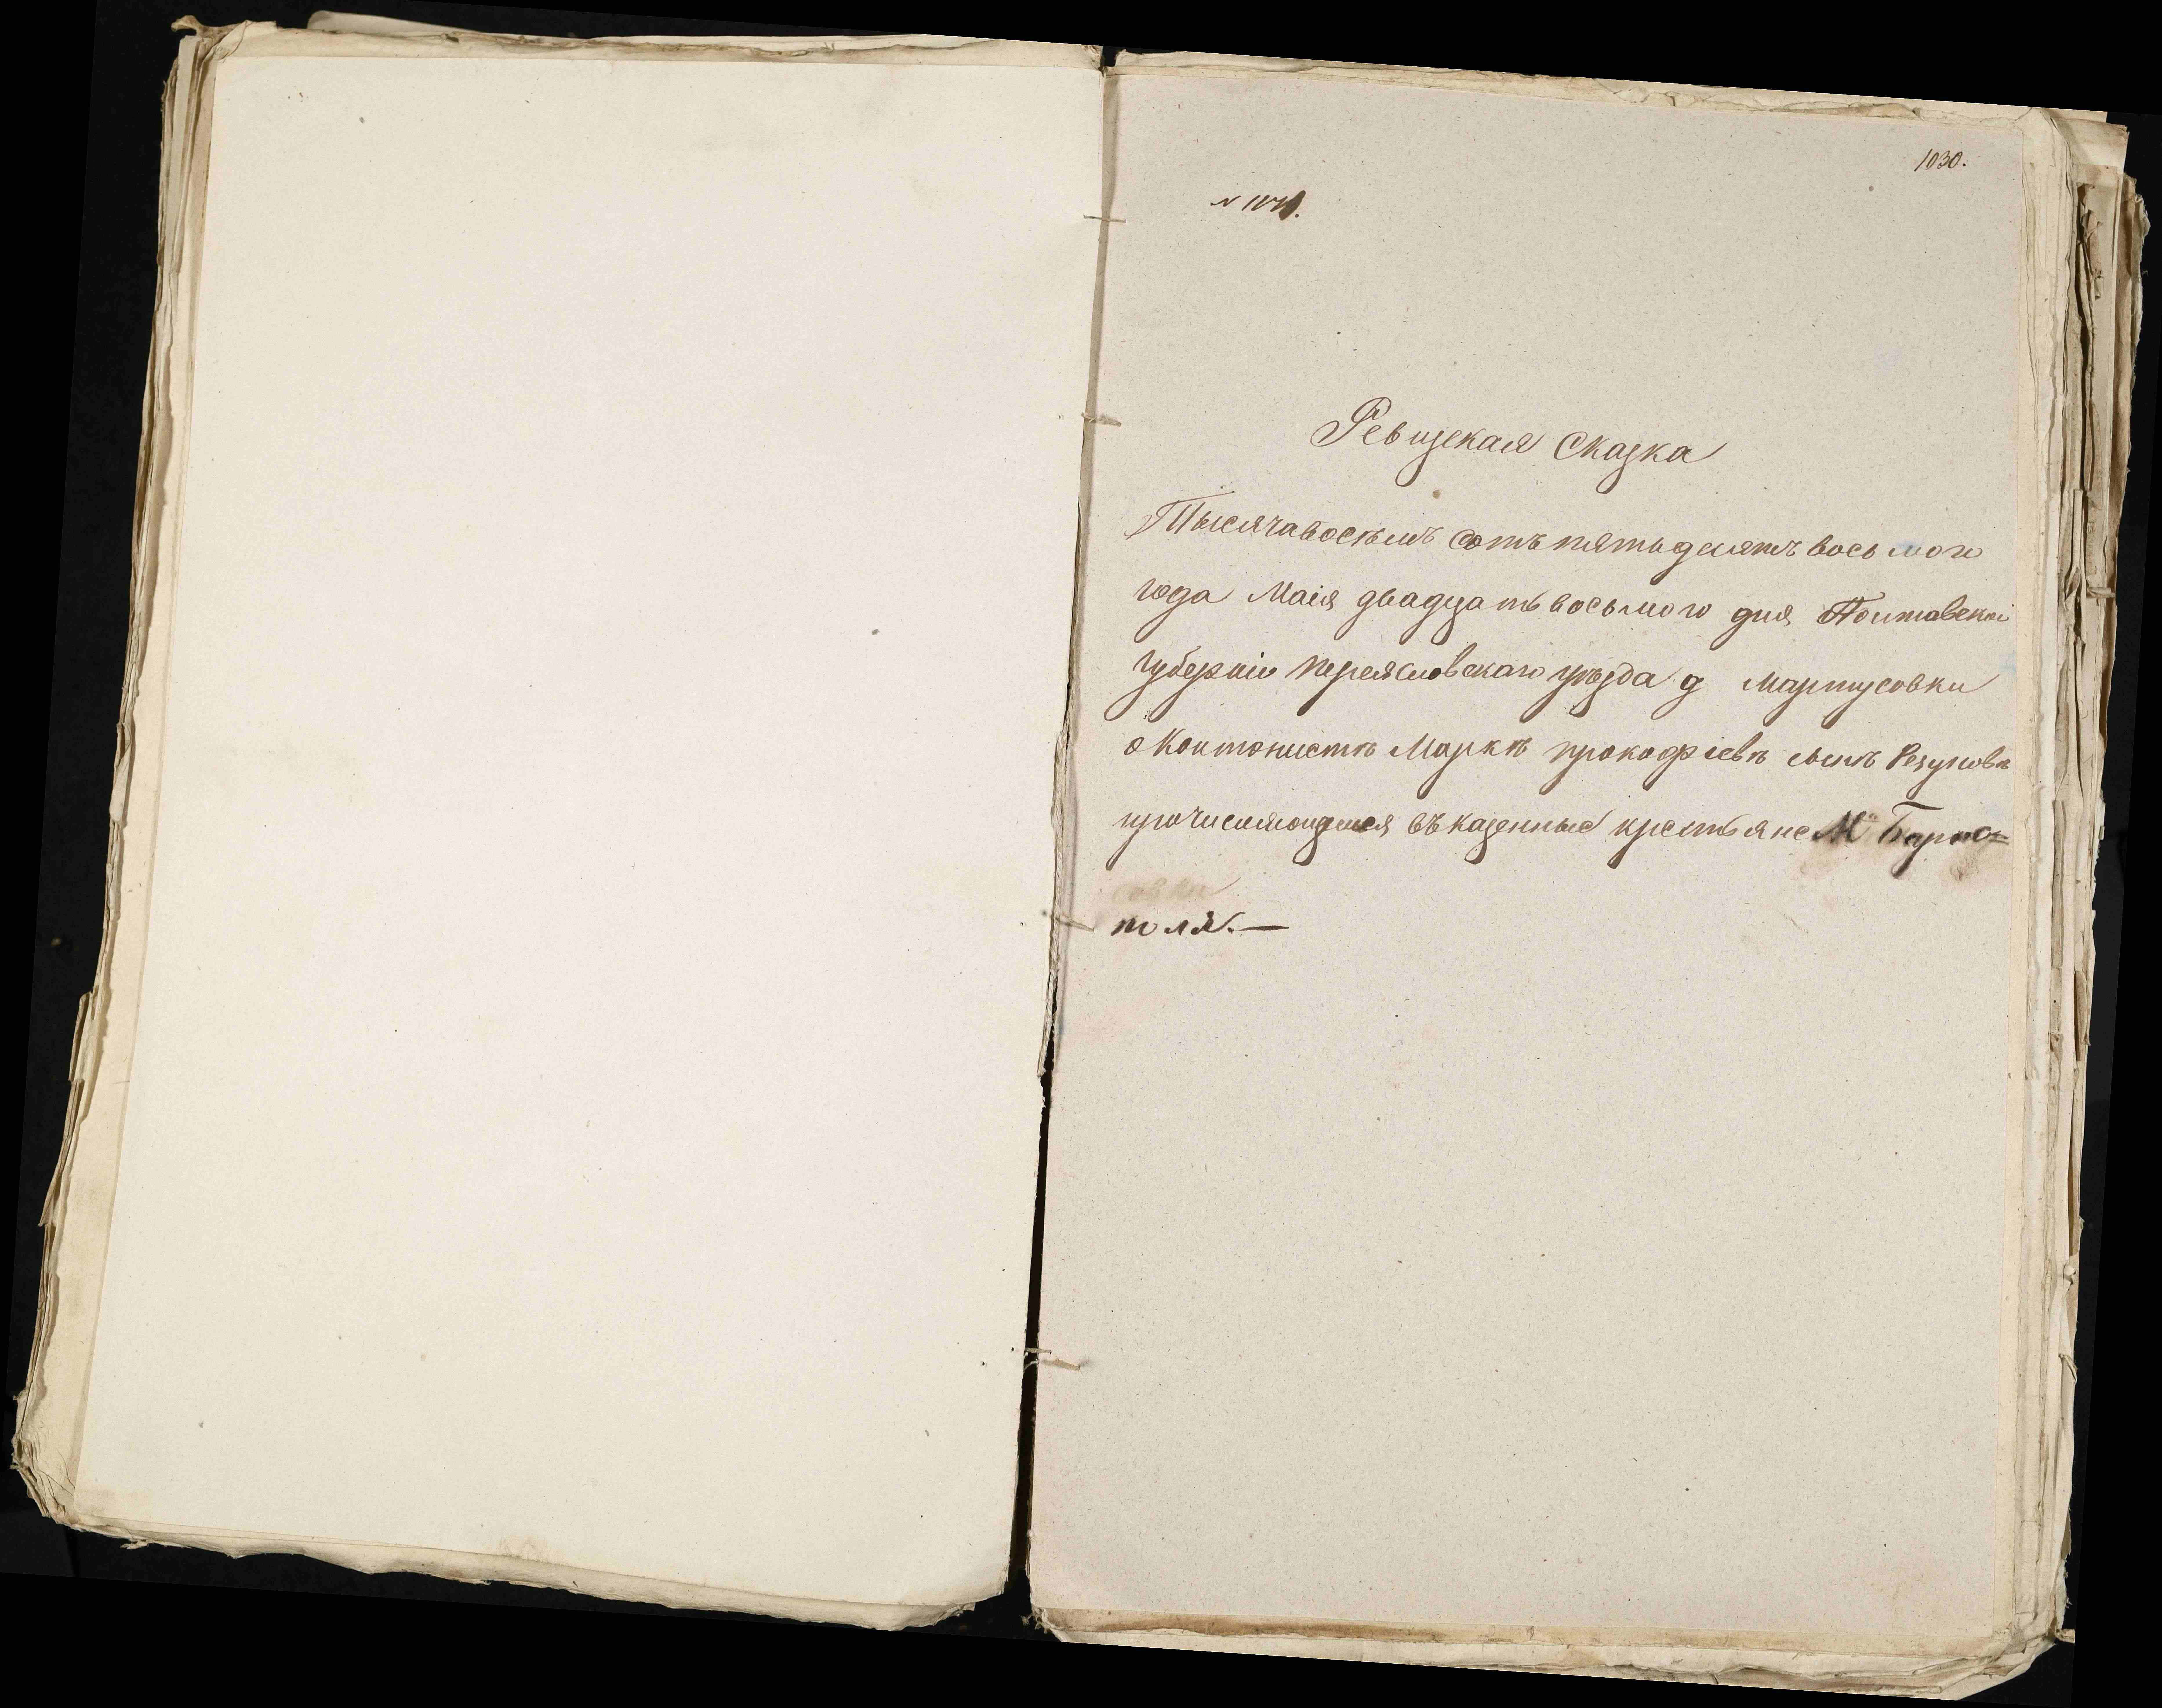 1030.
Ревизская Сказка
Тысяча восемь сотъ пятьдесятъ восьмого
года Маія двадцать восьмого дня Полтавской
губерніи переяславскаго уѣзда д Мартусовки
о Контонистѣ Маркѣ прокофіевѣ сынѣ Резуновѣ
прочисляющемся въ казенные крестьяне Мᵃ Барто=
совки
поля.—